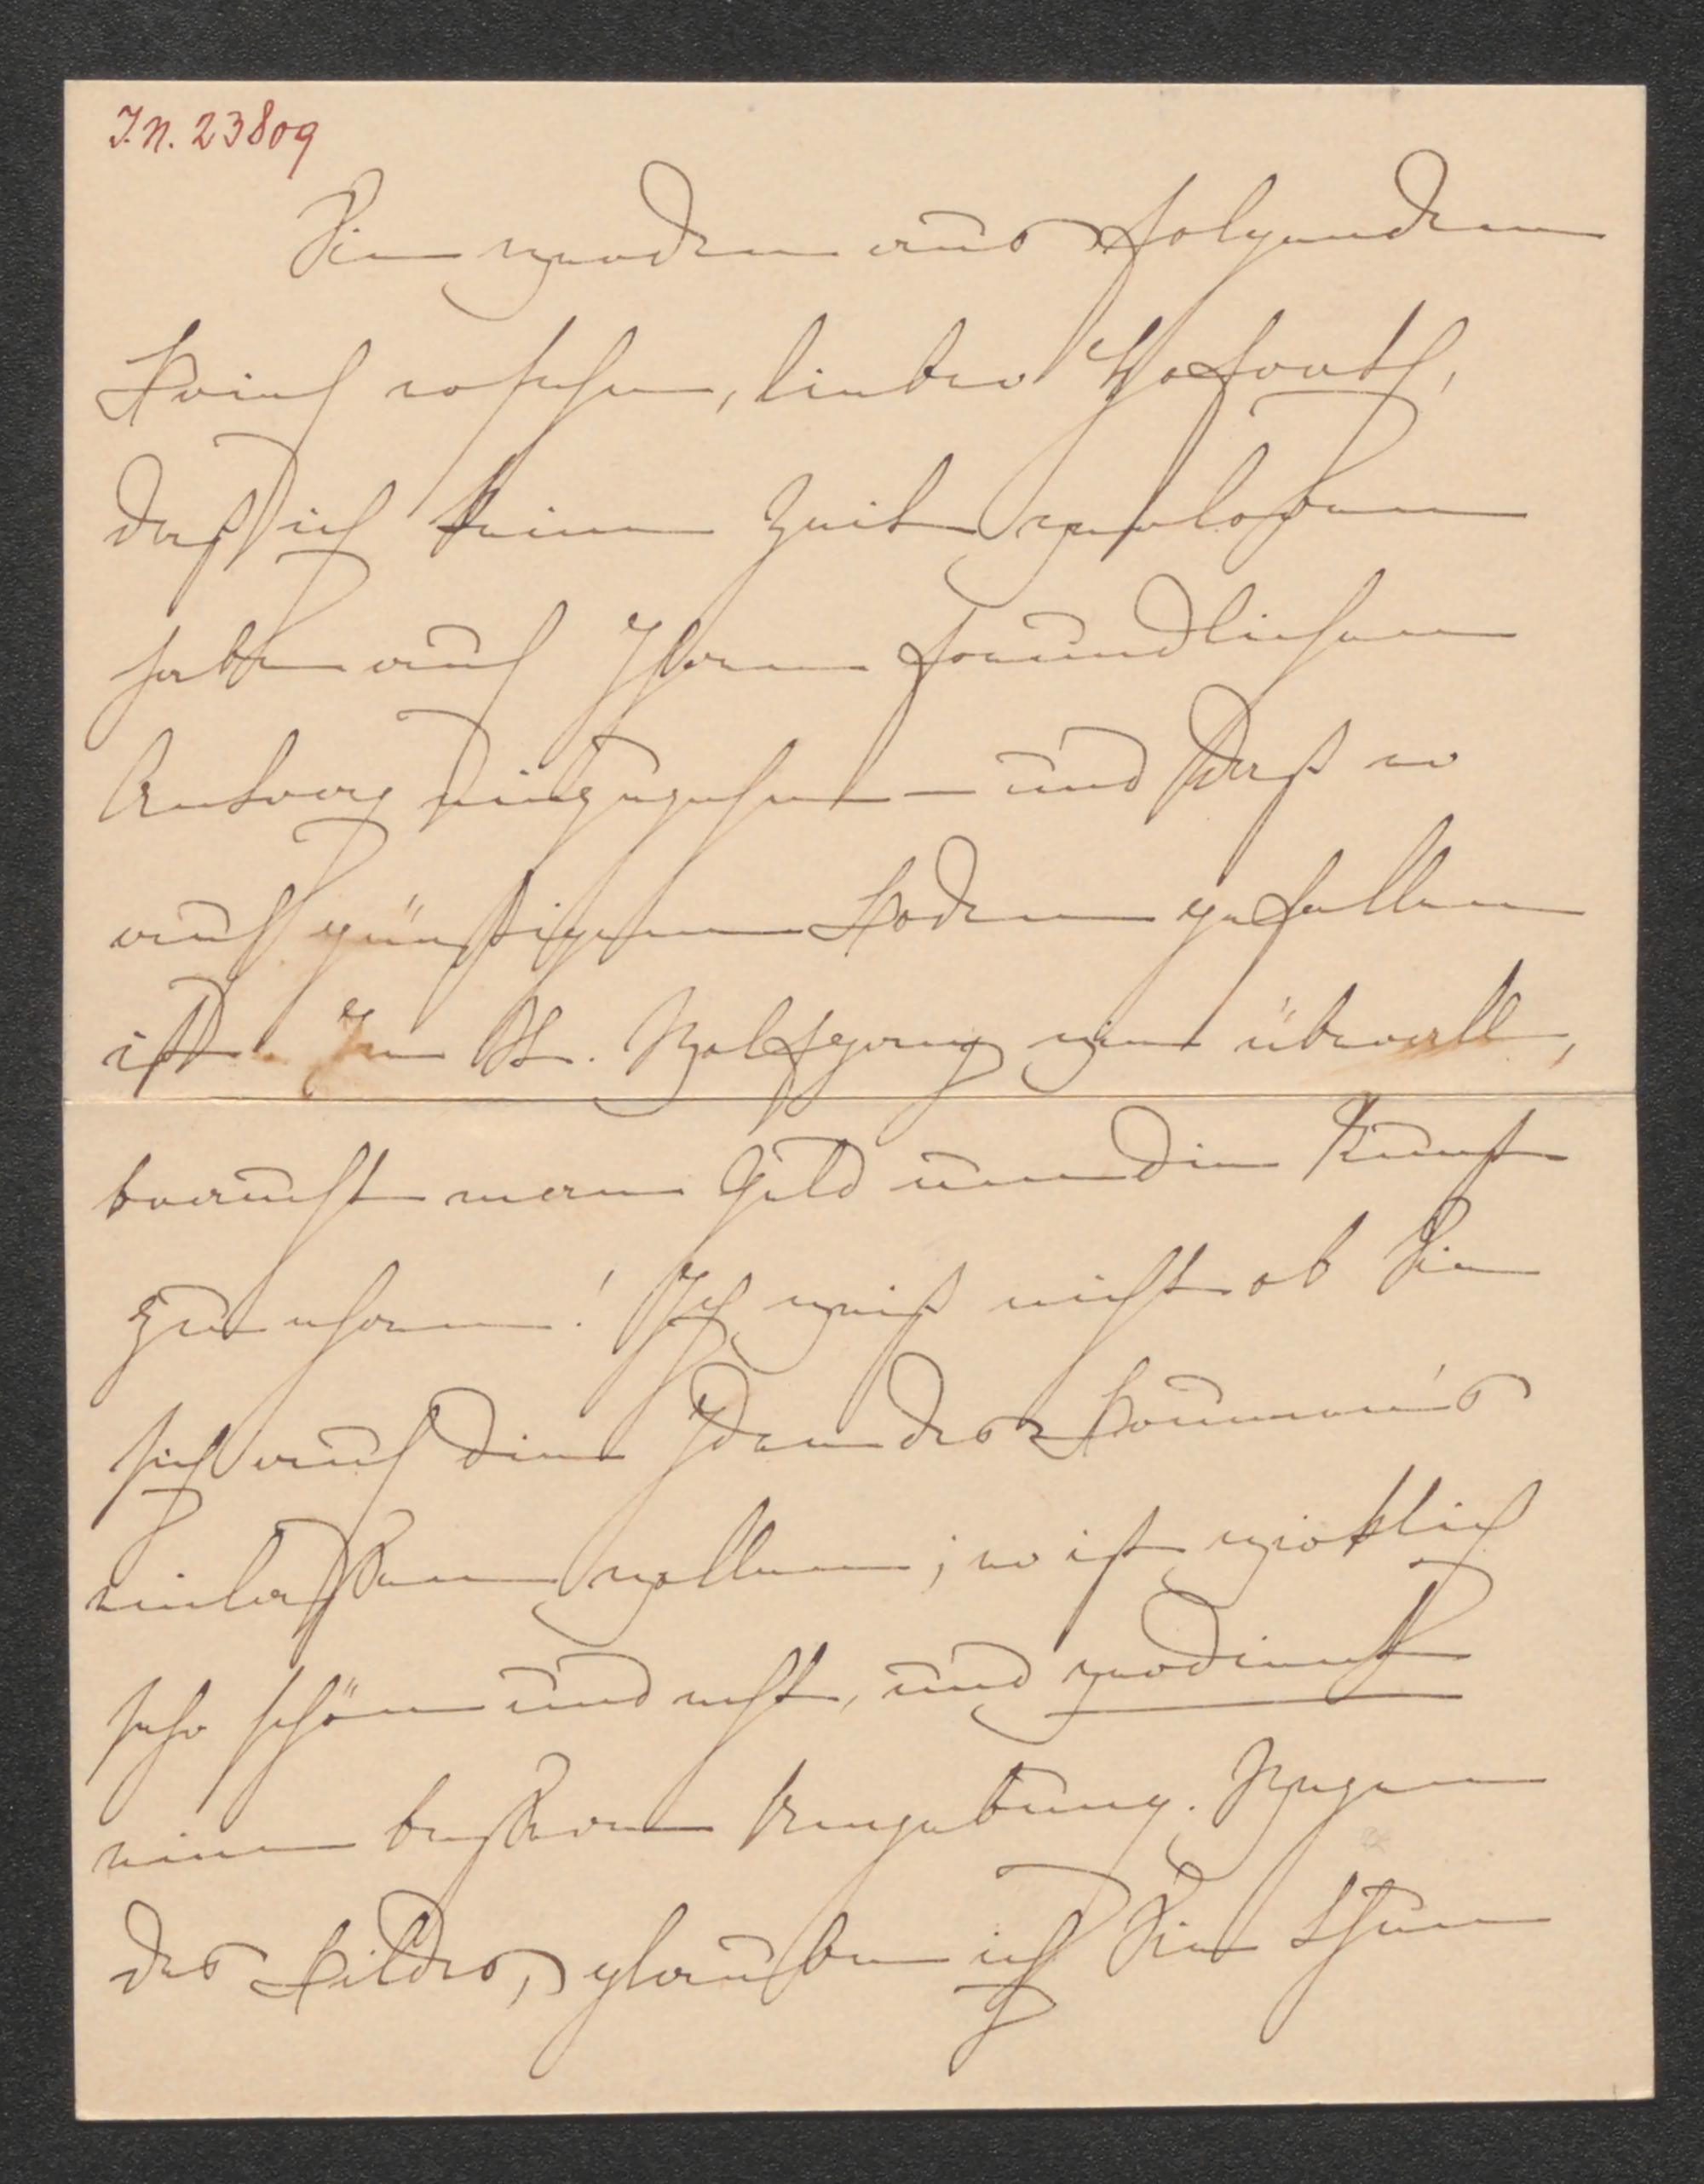 I.N. 23809
Sie werden aus folgendem
Brief ersehen, lieber Hofrath,
daß ich keine Zeit verloren
habe auf Ihren freundlichen
Antrag einzugehen – und daß er
auf günstigen Boden gefallen
ist. In St. Wolfgang wie überall,
braucht man Geld um die Kunst
zu ehren! Ich weiß nicht ob Sie
sich auf die Idee des
einlassen wollen; er ist wirklich
sehr schön und echt, und verdient
eine bessere Umgebung. Wegen
des Bildes, glaube ich Sie thun